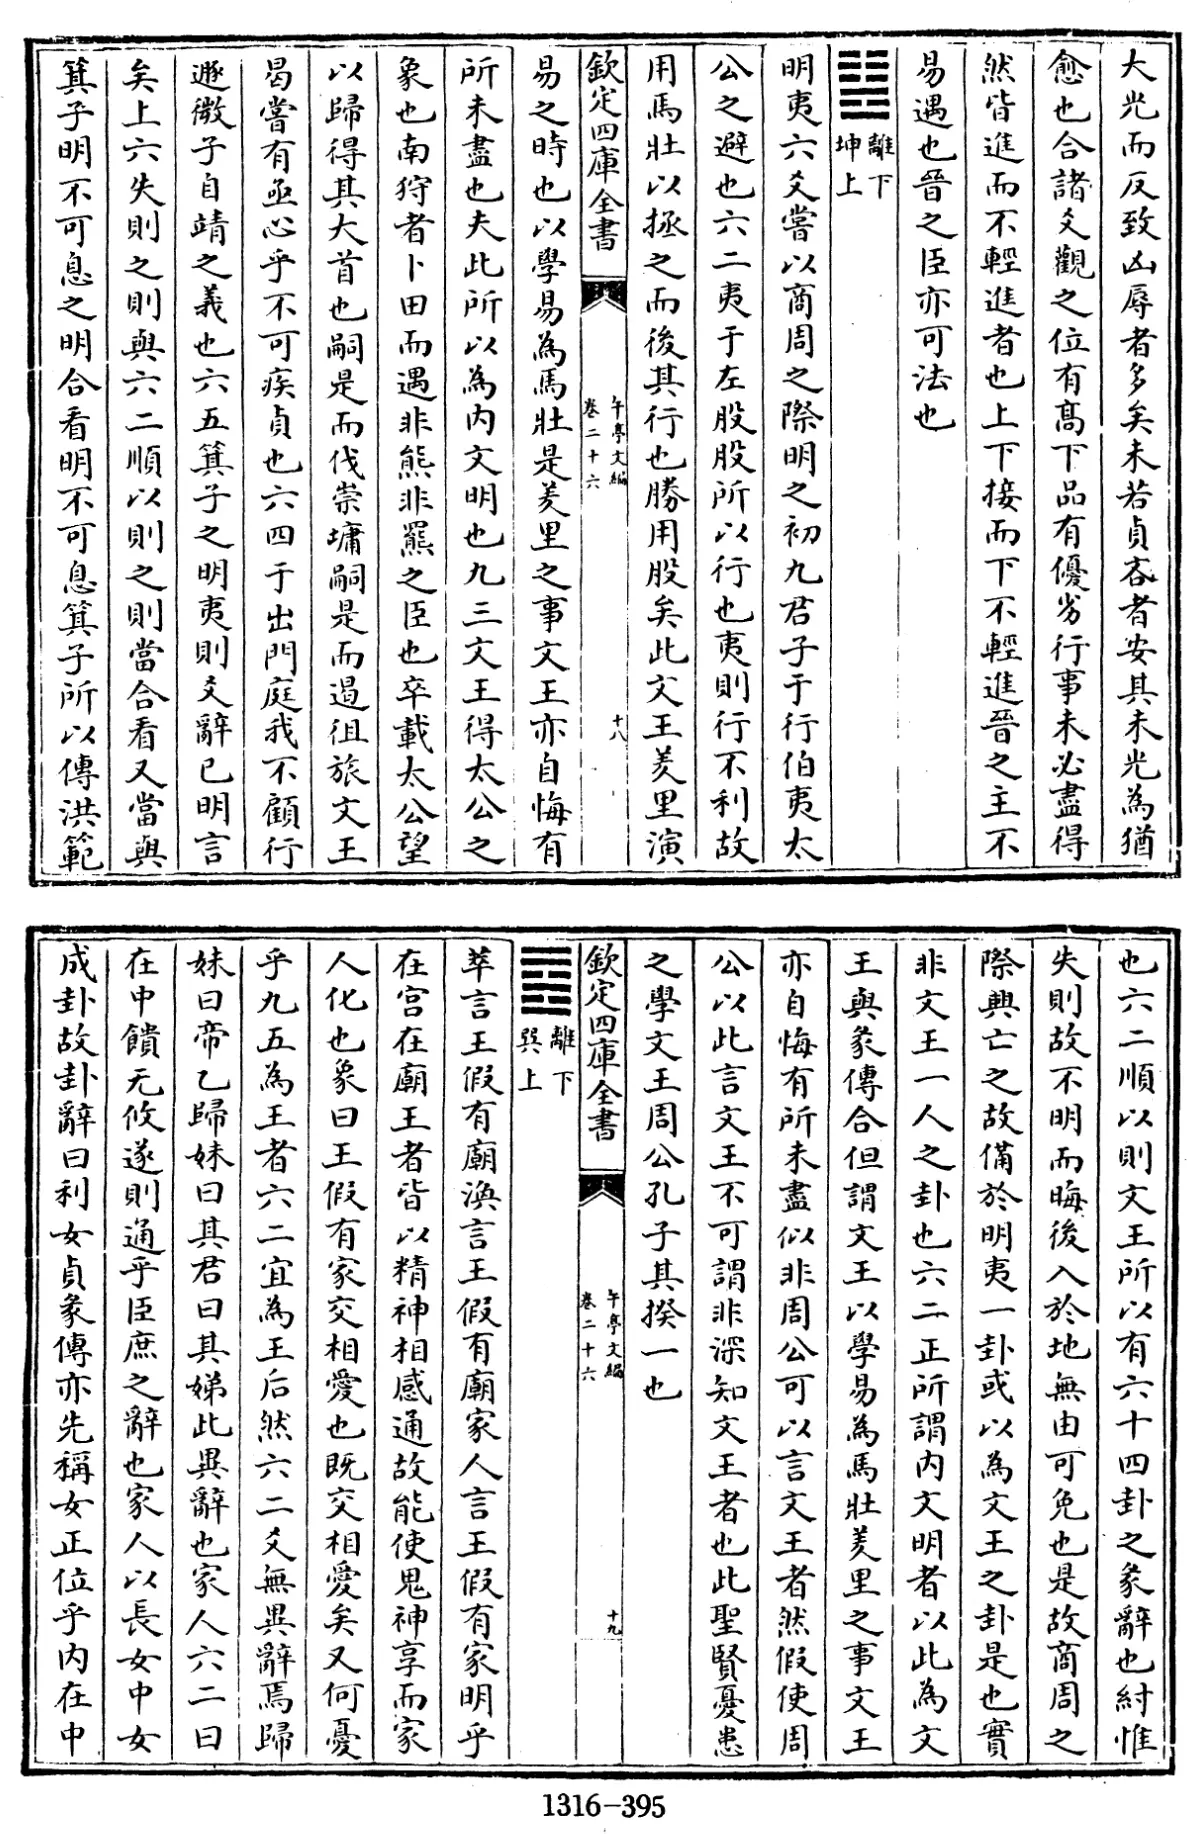 大光而反致凶辱者多矣未若貞吝者安其未光為猶
愈也合諸爻觀之位有髙下品有優劣行事未必盡得
然皆進而不輕進者也上下接而下不輕進晉之主不
易遇也晉之臣亦可法也
離下
坤上
明夷六爻嘗以商周之際明之初九君子于行伯夷太
公之避也六二夷于左股股所以行也夷則行不利故
用馬壯以拯之而後其行也勝用股矣此文王羑里演
欽定四庫全書
午亭文編
卷二十六
十八
易之時也以學易為馬壯是羑里之事文王亦自悔有
所未盡也夫此所以為内文明也九三文王得太公之
象也南狩者卜田而遇非熊非羆之臣也卒載太公望
以歸得其大首也嗣是而伐崇墉嗣是而遏徂旅文王
曷嘗有亟心乎不可疾貞也六四于出門庭我不顧行
遯微子自靖之義也六五箕子之明夷則爻辭已明言
矣上六失則之則與六二順以則之則當合看又當與
箕子明不可息之明合看明不可息箕子所以傳洪範
也六二順以則文王所以有六十四卦之彖辭也紂惟
失則故不明而晦後入於地無由可免也是故商周之
際興亡之故備於明夷一卦或以為文王之卦是也實
非文王一人之卦也六二正所謂内文明者以此為文
王與彖傳合但謂文王以學易為馬壯羑里之事文王
亦自悔有所未盡似非周公可以言文王者然假使周
公以此言文王不可謂非深知文王者也此聖賢憂患
之學文王周公孔子其揆一也
欽定四庫全書
午亭文編
卷二十六
十九
離下
巽上
萃言王假有廟渙言王假有廟家人言王假有家明乎
在宫在廟王者皆以精神相感通故能使鬼神享而家
人化也象曰王假有家交相愛也既交相愛矣又何憂
乎九五為王者六二宜為王后然六二爻無異辭焉歸
妹曰帝乙歸妹曰其君曰其娣此異辭也家人六二曰
在中饋无攸遂則通乎臣庶之辭也家人以長女中女
成卦故卦辭曰利女貞彖傳亦先稱女正位乎内在中
1316-395